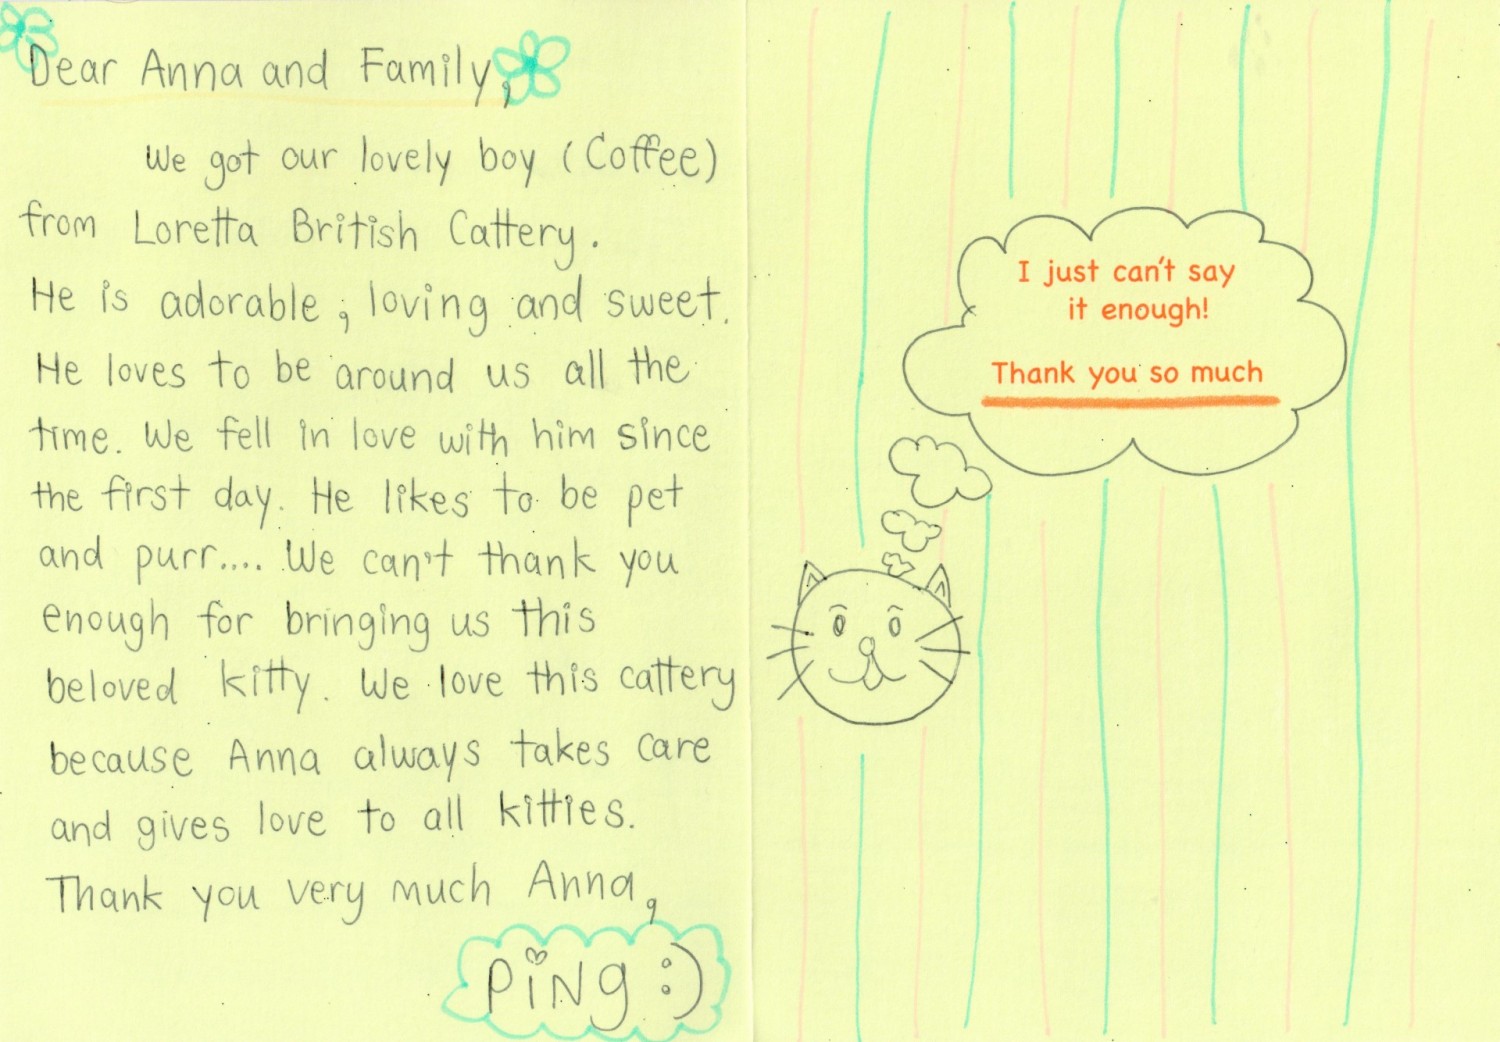 Dear Anna and Family,
We got our lovely boy (Coffee)
from Loretta British Cattery.
He is adorable, loving and sweet.
He loves to be around us all the
time. We fell in love with him since
the first day. He likes to be pet
and purr.... We can't thank you
enough for bringing us this
beloved kitty. We love this cattery
because Anna always takes care
and gives love to all kitties.
Thank you very much Anna,
PiNg :)
I just can't say
it enough!
Thank you so much